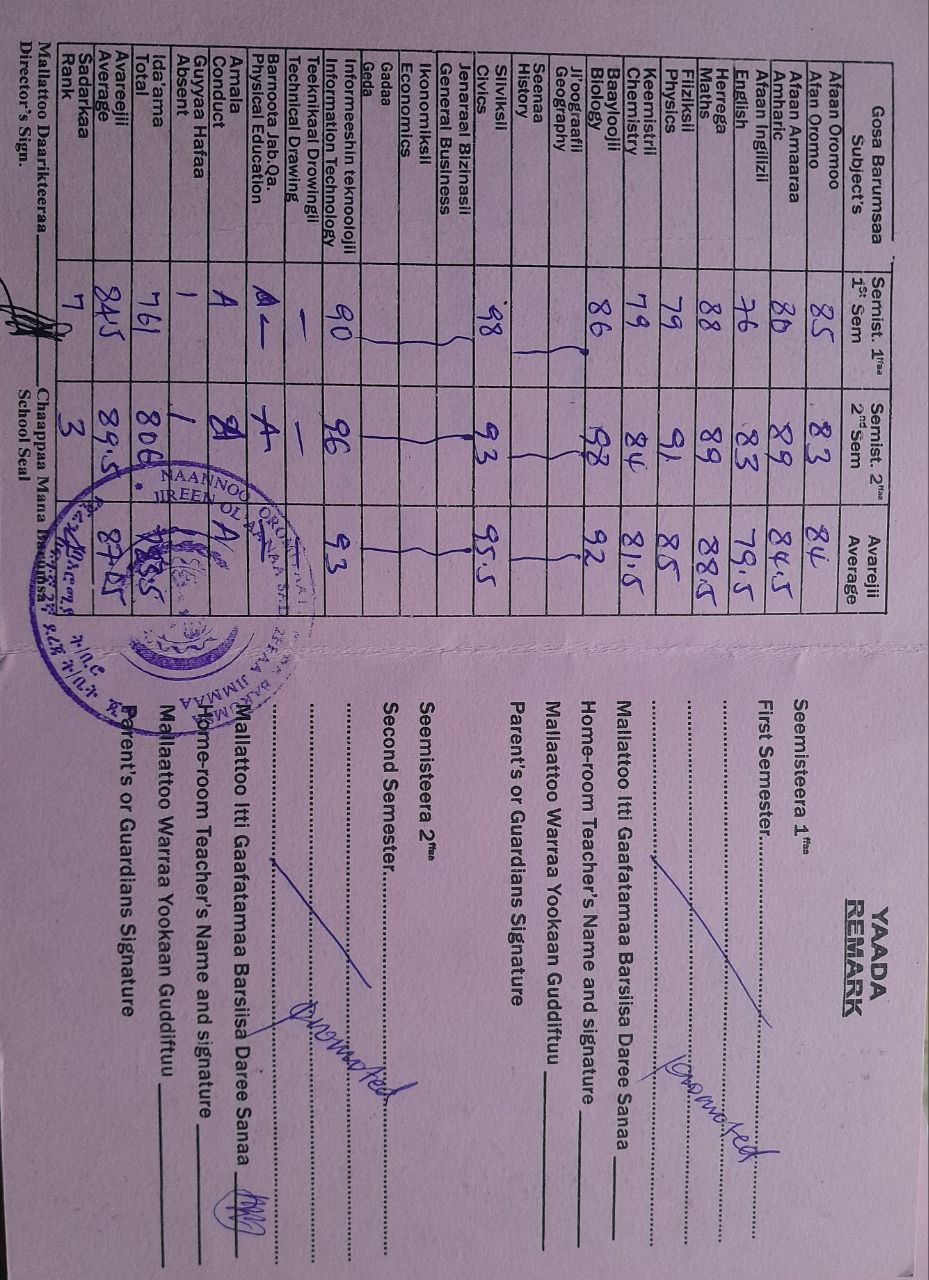 Gosa Barumsaa Semist. 1ffaa Semist. 2ffaa Avarejii
Subject's 1St Sem 2nd Sem Average
Afaan Oromoo
Afan Oromo 85 83 84
Afaan Amaaraa
Amharic 80 89 84.5
Afaan Ingilizii
English 76 83 79.5
Herrega
Maths 88 89 88.5
Fiiziksii
Physics 79 91 85
Keemistrii
Chemistry 79 84 81.5
Baayolojii
Biology 86 98 92
Ji'oograafii
Geography
Seenaa
History
Siiviksii
Civics 98 93 95.5
Jenaraal Bizinasii
General Business
Ikonomiksii
Economics
Gadaa
Geda
Informeeshin teknoolojii
Information Technology 90 96 93
Teeknikaal Drowingii
Technical Drawing — —
Barnoota Jab.Qa.
Physical Education A — A
Amala
Conduct A A A
Guyyaa Hafaa
Absent 1 1
Ida'ama
Total 761 806
Avareejii
Average 84.5 89.5 87
Sadarkaa
Rank 7 3
Mallattoo Daarikteeraa Chaappaa Mana Barumsa
Director's Sign. School Seal
NAANNOO
JIMMAA
YAADA
REMARK
Seemisteera 1ffaa
First Semester
Promoted
Mallattoo Itti Gaafatamaa Barsiisa Daree Sanaa
Home-room Teacher's Name and signature
Mallaattoo Warraa Yookaan Guddiftuu
Parent's or Guardians Signature
Seemisteera 2ffaa
Second Semester
Promoted
Mallattoo Itti Gaafatamaa Barsiisa Daree Sanaa
Home-room Teacher's Name and signature
Mallaattoo Warraa Yookaan Guddiftuu
Parent's or Guardians Signature